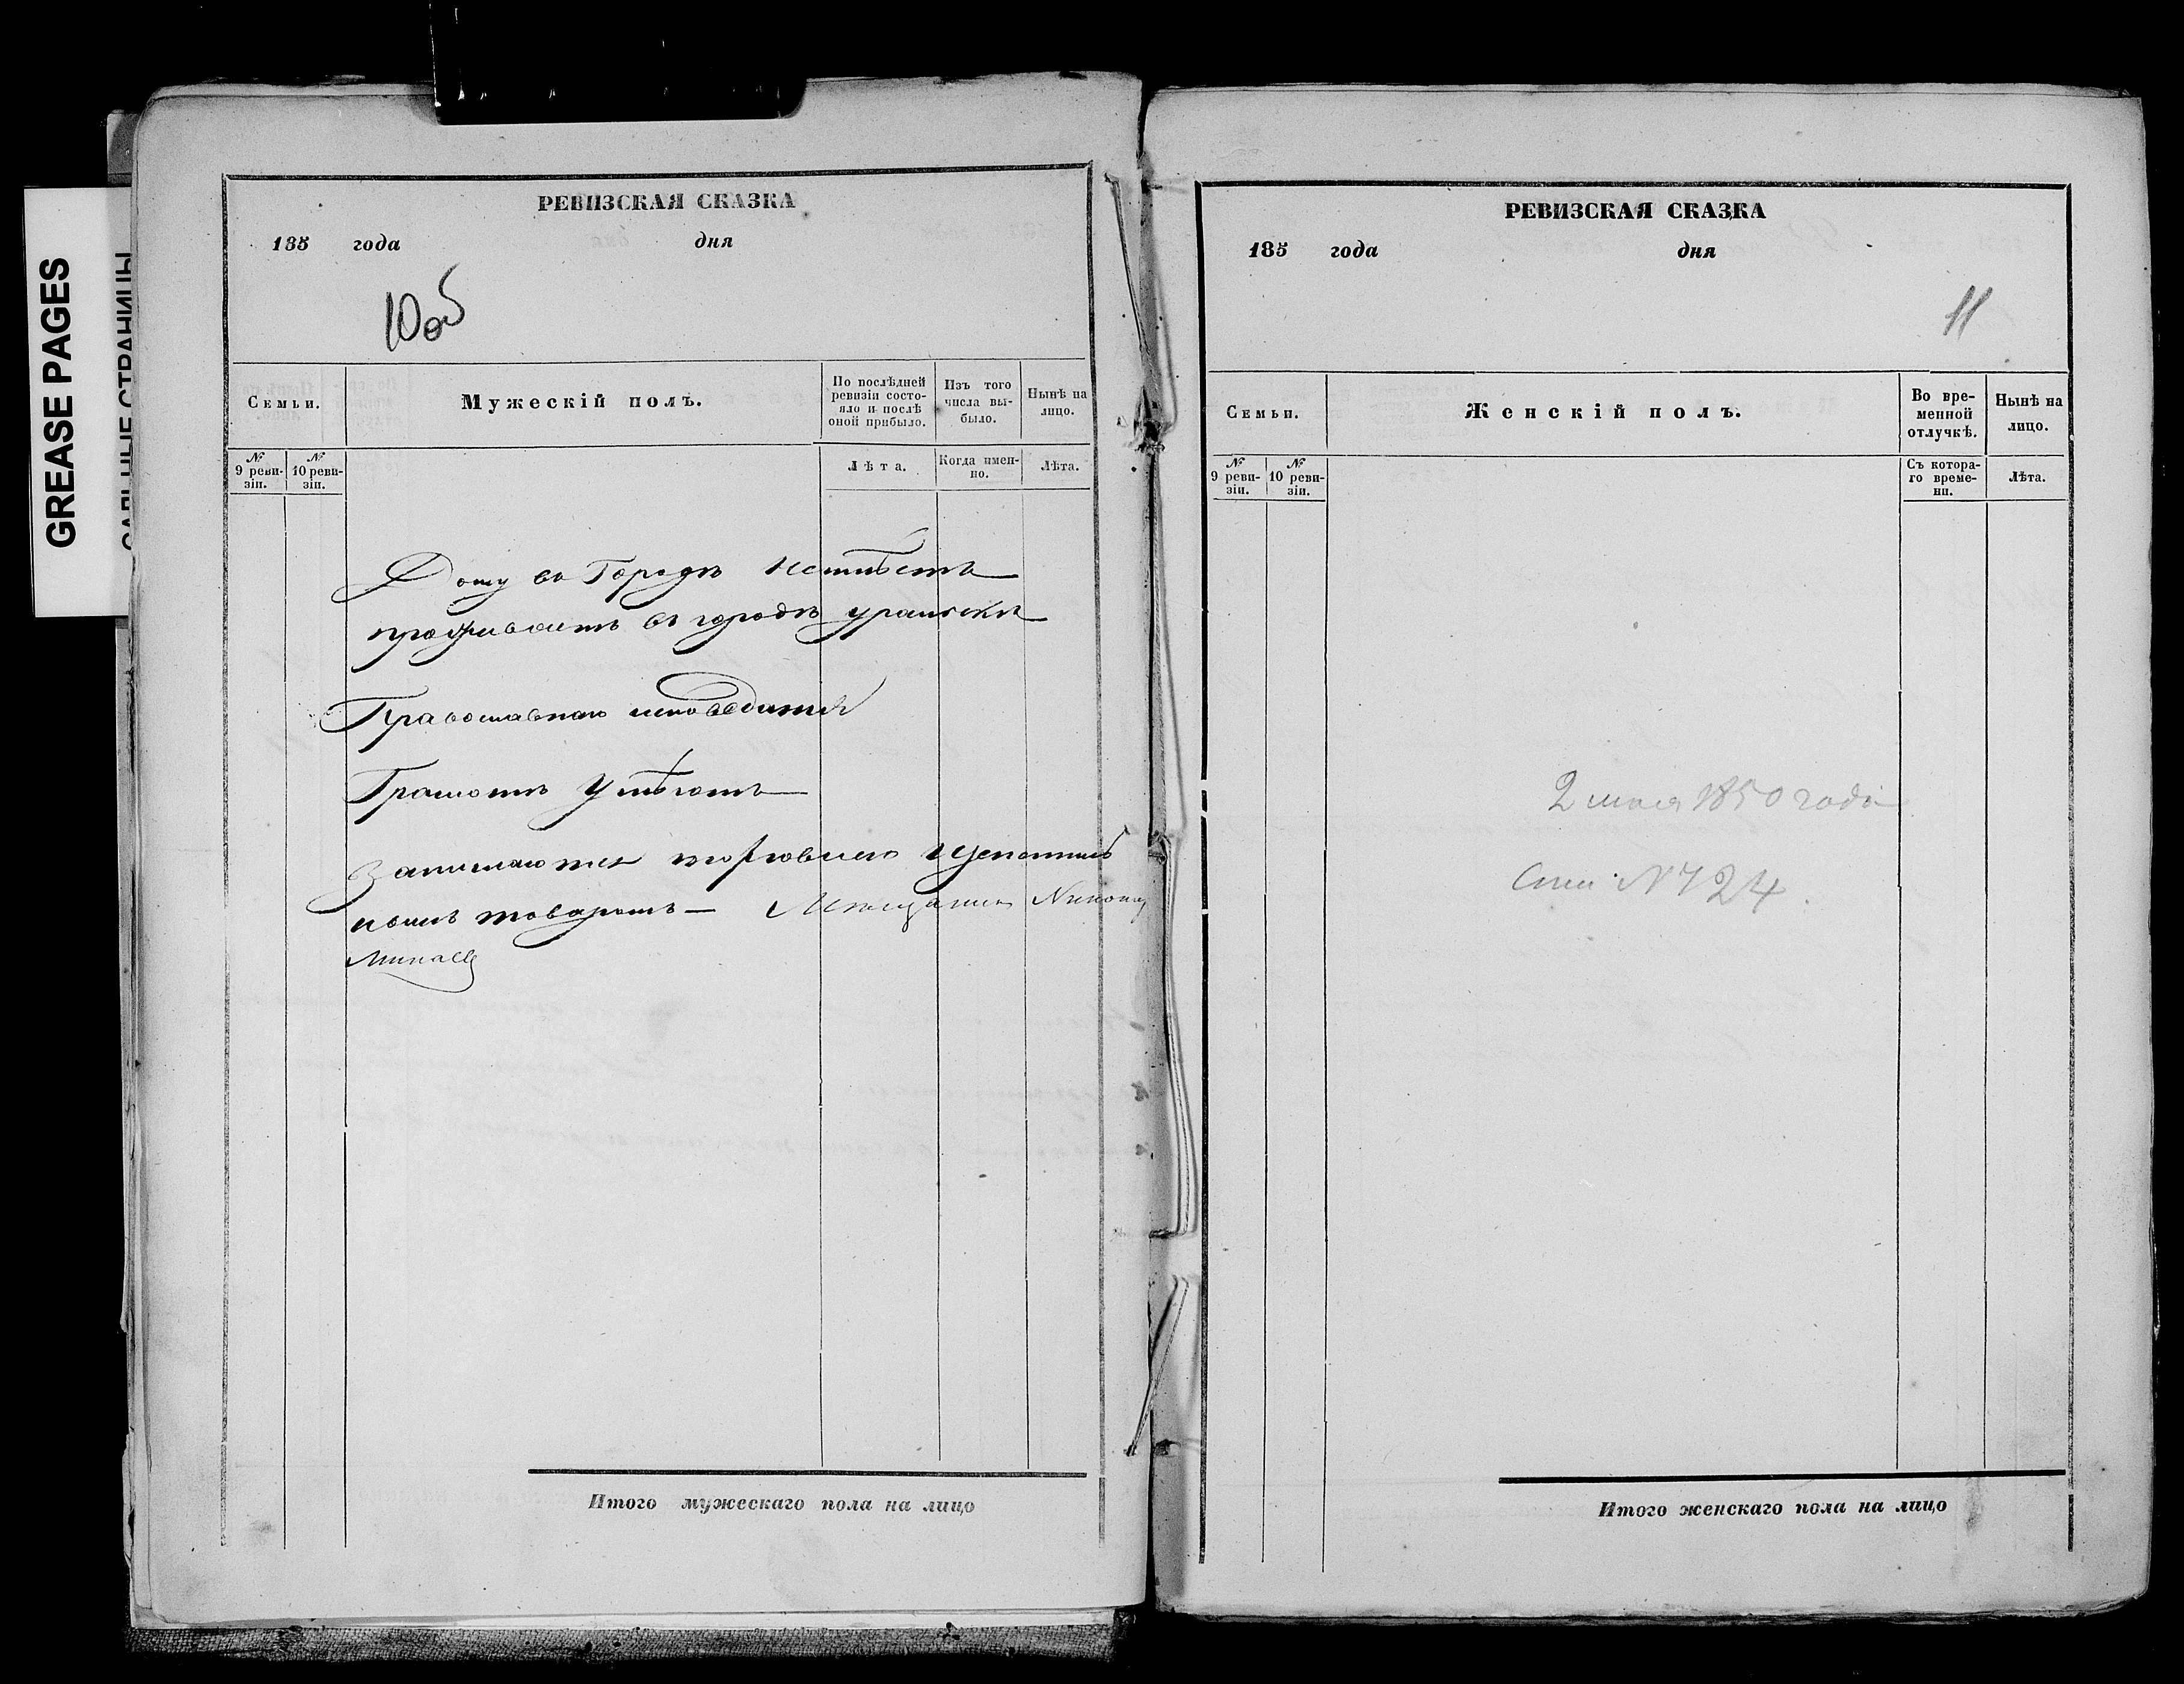 GREASE PAGES
САЛЬНЫЕ СТРАНИЦЫ
РЕВИЗСКАЯ СКАЗКА
185 года дня
10об
Семьи.
Мужескій полъ.
По послѣдней ревизіи состояло и послѣ оной прибыло.
Изъ того числа выбыло.
Нынѣ на лицо.
№ 9 ревизіи.
№ 10 ревизіи.
Лѣта.
Когда именно.
Лѣта.
Дому въ Городѣ неимѣетъ
проживаетъ въ городѣ уральскѣ
Православнаго исповедания
Грамоте Умѣютъ
Занимаются торговлею
нымъ товаромъ — Мещанинъ
Минаевъ
Итого мужескаго пола на лицо
РЕВИЗСКАЯ СКАЗКА
185 года дня
11
Семьи.
Женскій полъ.
Во временной отлучкѣ.
Нынѣ на лицо.
№ 9 ревизіи.
№ 10 ревизіи.
Съ котораго времени.
Лѣта.
2 мая 1850 года
№ 724
Итого женскаго пола на лицо